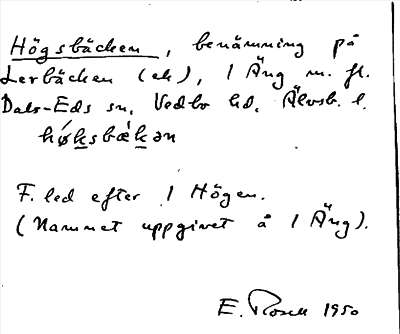 Högsbäcken, benämning på
Lerbäcken (ek), 1 Äng m. fl.
Dals-Eds sn, Vedbo hd, Älvsb. l.
hø̀ksbæ̀kən
F. led efter 1 Högen.
(Namnet uppgivet å 1 Äng).
E. Rosell 1950